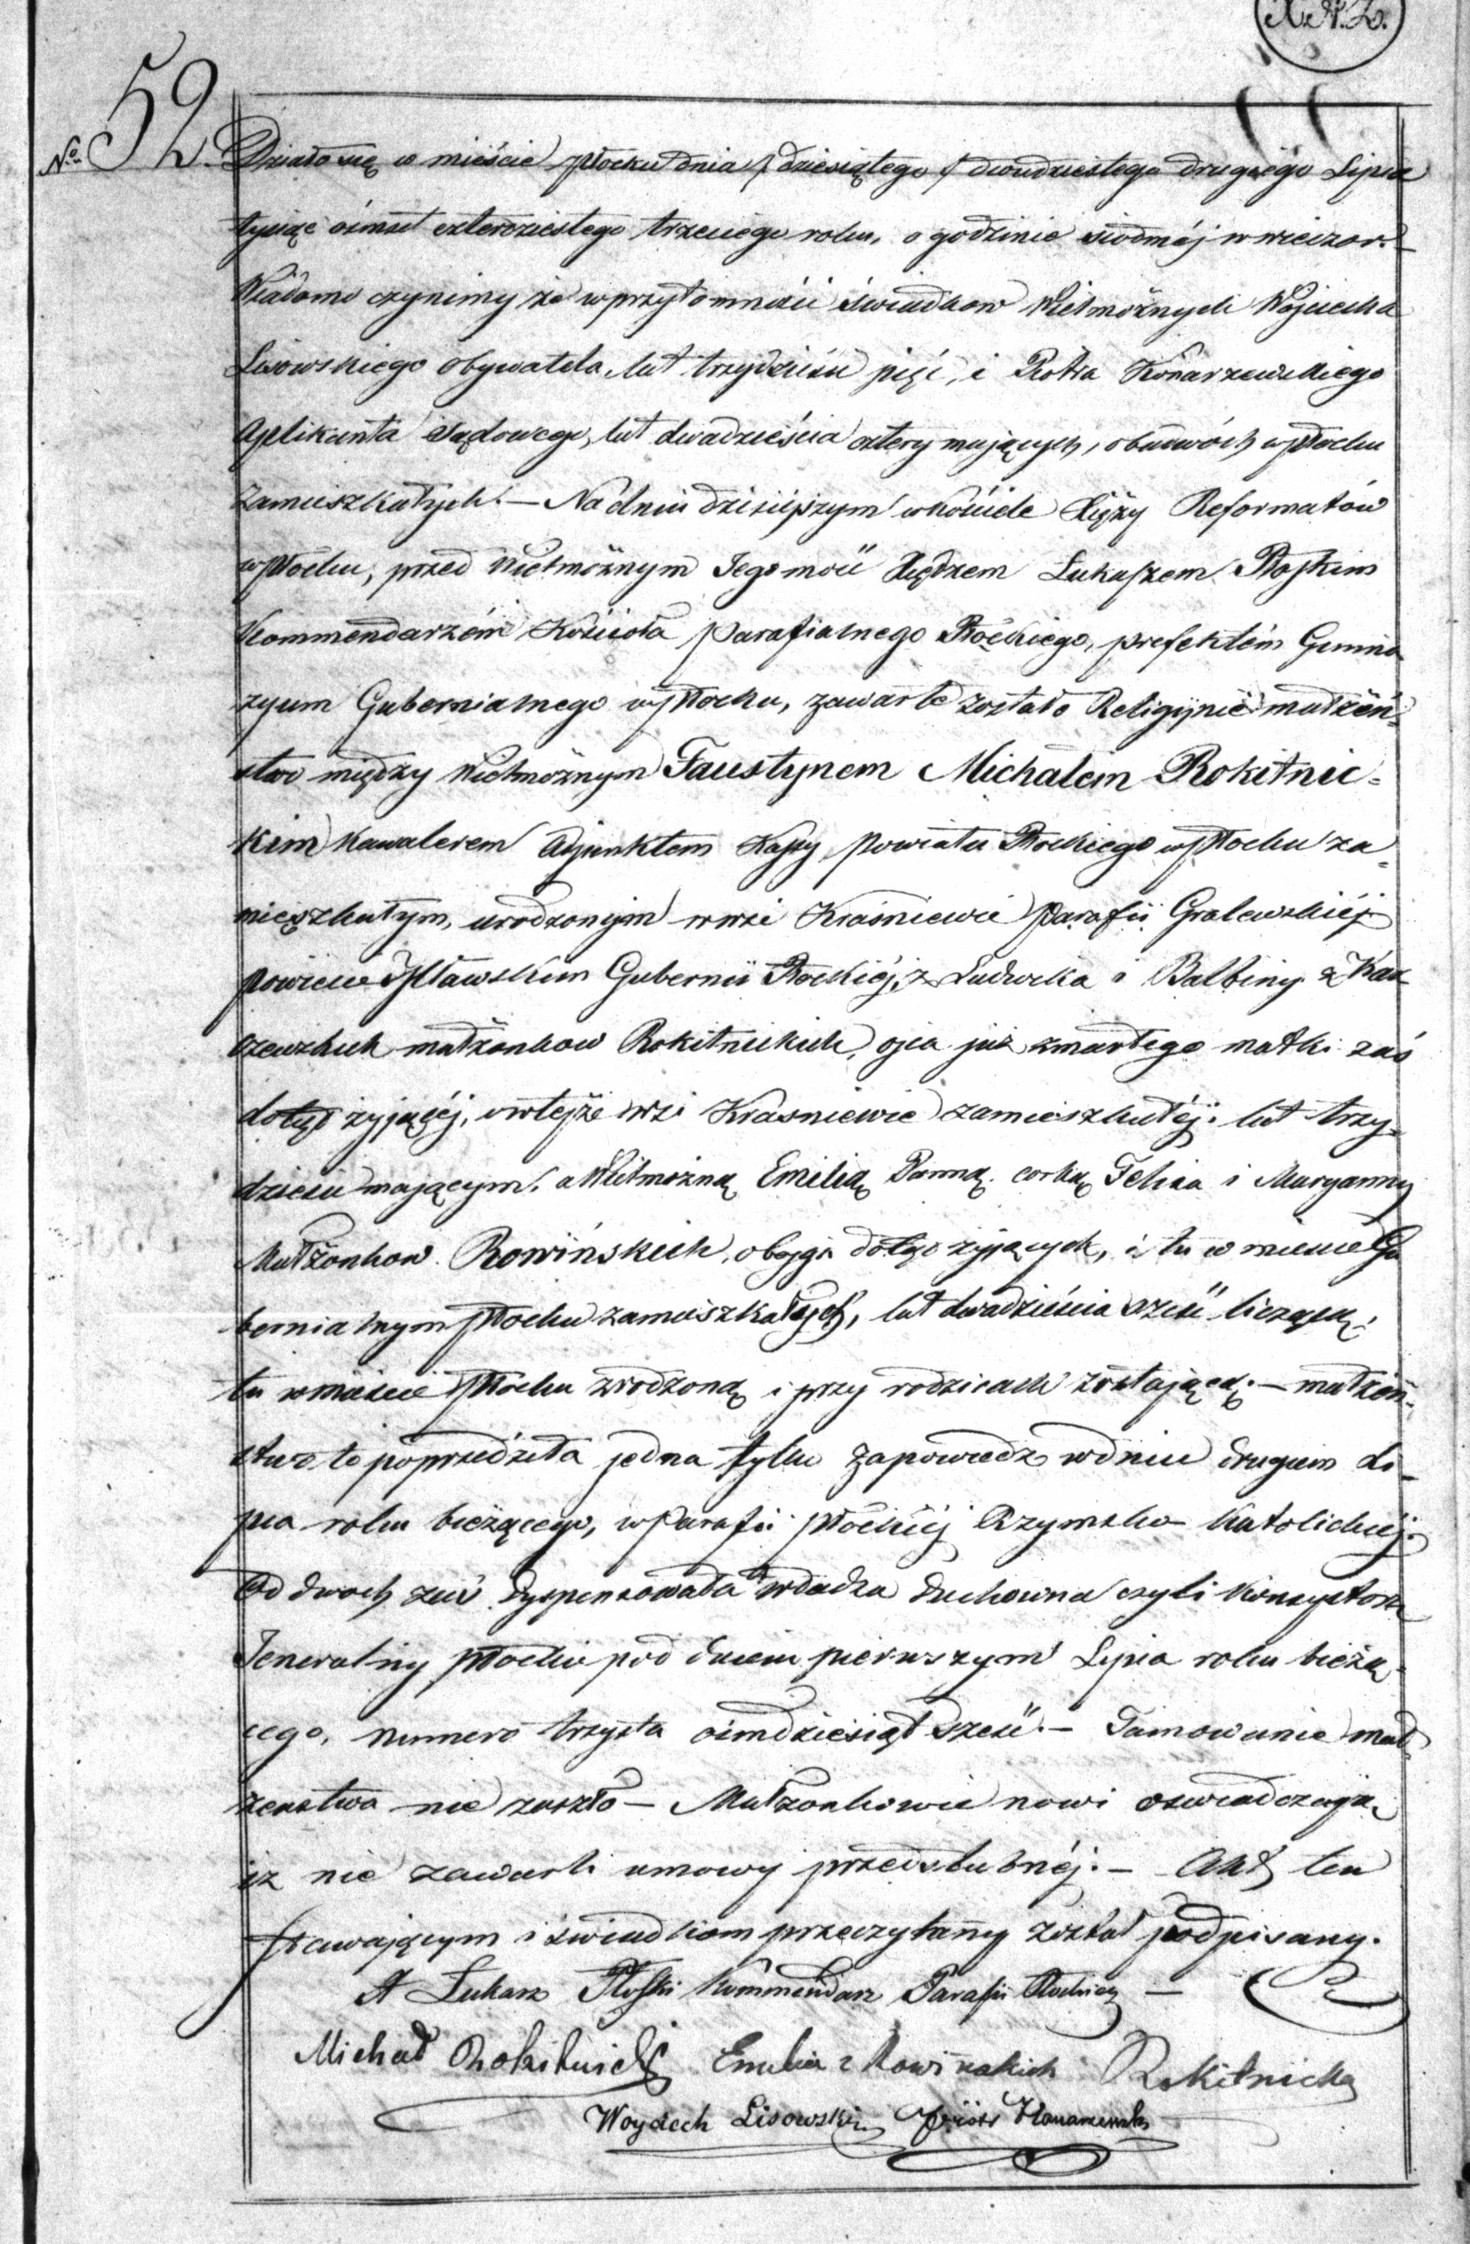 X.A.Z.
No. 52.
Działo się w mieście Płocku dnia / dziesiątego / dwudziestego drugiego Lipca
tysiąc ośmset czterdziestego trzeciego roku, o godzinie siodméj w wieczor.—
Wiadomo czynimy że w przytomności świadkow Wielmożnych Wojciecha
Lisowskiego obywatela, lat trzydzieści pięć, i Piotra Konarzewskiego
Aplikanta sądowego, lat dwadzieścia cztery mających, obudwóch w Płocku
zamieszkałych.— Na dniu dzisiejszym w kościele Xięży Reformatów
w Płocku, przed Wielmożnym Jegomość Xiędzem Łukaszem Płoskim
Kommendarzém Kościoła Parafialnego Płockiego, prefektém Gimna
zyum Gubernialnego w Płocku, zawarte zostało Religijnie małżeń=
stwo między Wielmożnym Faustynem Michałem Rokitnic=
kim kawalerem Adjunktem Kassy Powiatu Płockiego w Płocku za=
mieszkałym, urodzonym w wsi Kraśniewie Parafii Gralewskiéj
Powiecie Mławskim Gubernii Płockiéj, z Ludwika i Balbiny z Kar
czewskich małżonkow Rokitnickich, ojca już zmarłego matki zaś
dotąd żyjącéj, w tejże wsi Krasniewie zamieszkałéj. lat trzy=
dzieści mającym, a Wielmożną Emilią Panną córką Felixa i Maryanny
Małżonkow Rowińskich, obojga dotąd żyjących, i tu w mieście Gu
bernialnym Płocku zamieszkałych, lat dwadzieścia sześć liczącą,
tu w mieście Płocku zrodzoną i przy rodzicach zostającą.— małżeń=
stwo to poprzedziła jedna tylko zapowiedz w dniu drugim Li-
pca roku bieżącego, w Parafii Płockiéj Rzymsko-Katolickiéj.
Od dwoch zaś dyspensowała władza duchowna czyli Konsystorz
Jeneralny Płocki pod dniem pierwszym Lipca roku bieżą=
cego, numero trzysta ośmdziesiąt sześć.— Tamowanie mał=
żenstwa nie zaszło— Małżonkowie nowi oswiadczają,
iż nie zawarli umowy przedslubnéj.— Akt ten
stawającym i świadkom przeczytanny został podpisany.
X Łukasz Płoski Kommendarz Parafii Płockiey —
Michał Rokitnicki Emilia z Rowińskich Rokitnicka
Woyciech Lisowski Piotr Konarzewski